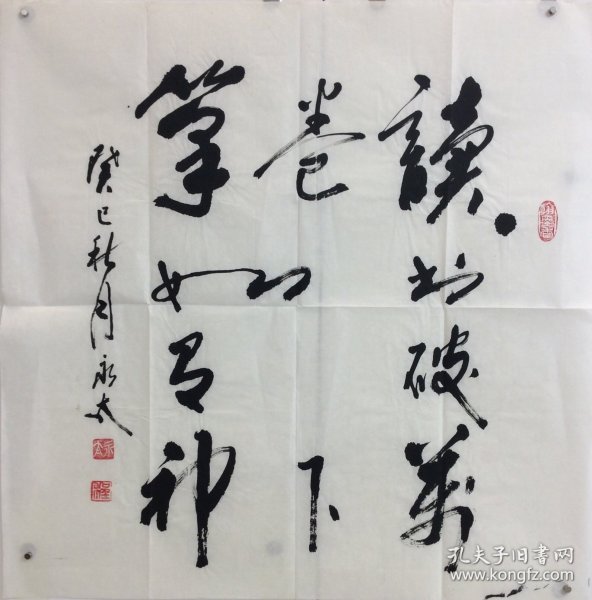 讀书破萬
卷下
筆如有神
癸巳秋月永太
孔夫子旧书网
www.kongfz.com